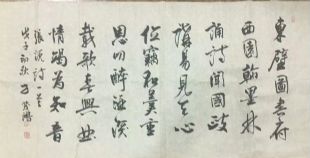 東壁圖書府
西園翰墨林
誦詩聞國政
講易見天心
位竊和羹重
恩叨醉酒深
載歌春興曲
情竭為知音
張說詩一首
子初秋